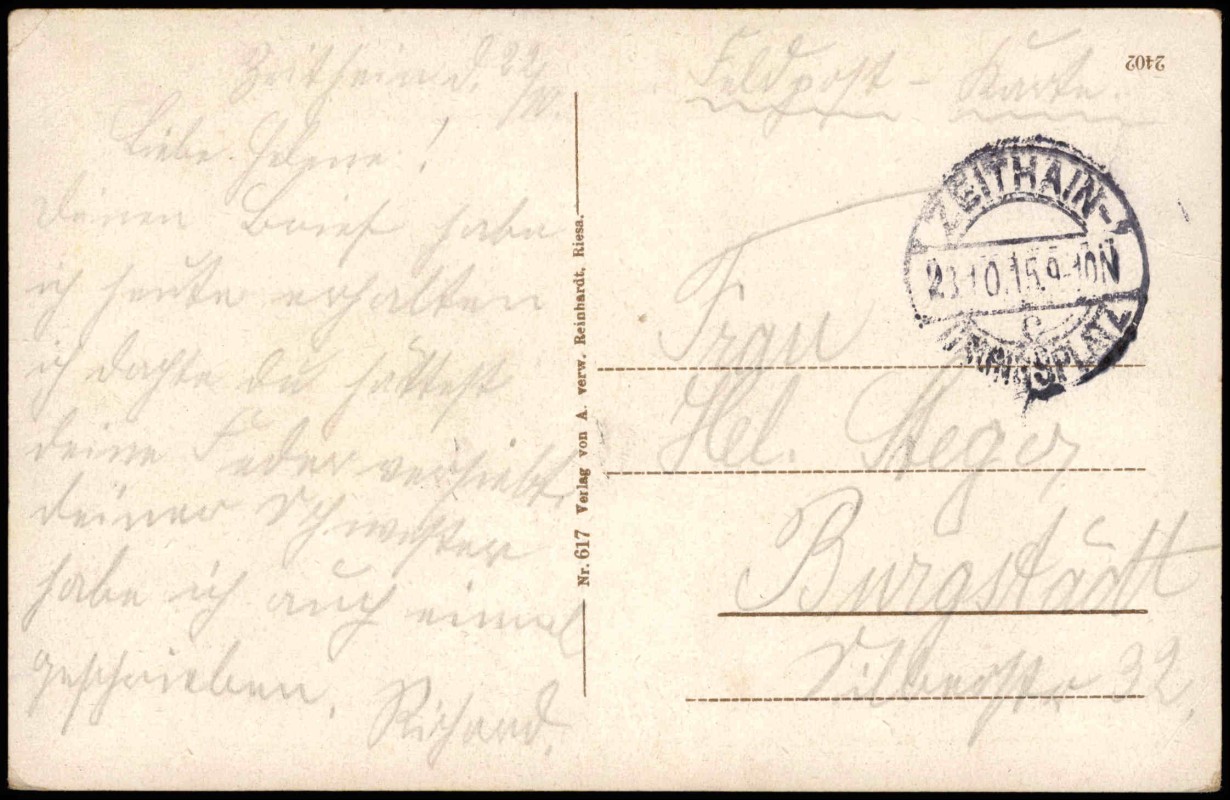 Zeithein d. 22/10.
Liebe Helene!
Deinen Brief habe
ich heute erhalten
ich dachte du hättest
deine Feder versiebt,
deiner Schwester
habe ich auch einmal
geschrieben. Richard.
Nr. 617 Verlag von A. verw. Reinhardt, Riesa.
2402
Feldpost - Karte.
ZEITHAIN-
23.10.15.9-10N
c
ÜBUNGSPLATZ
Frau
Hel. Steger
Burgstädt
Silberstr 32.